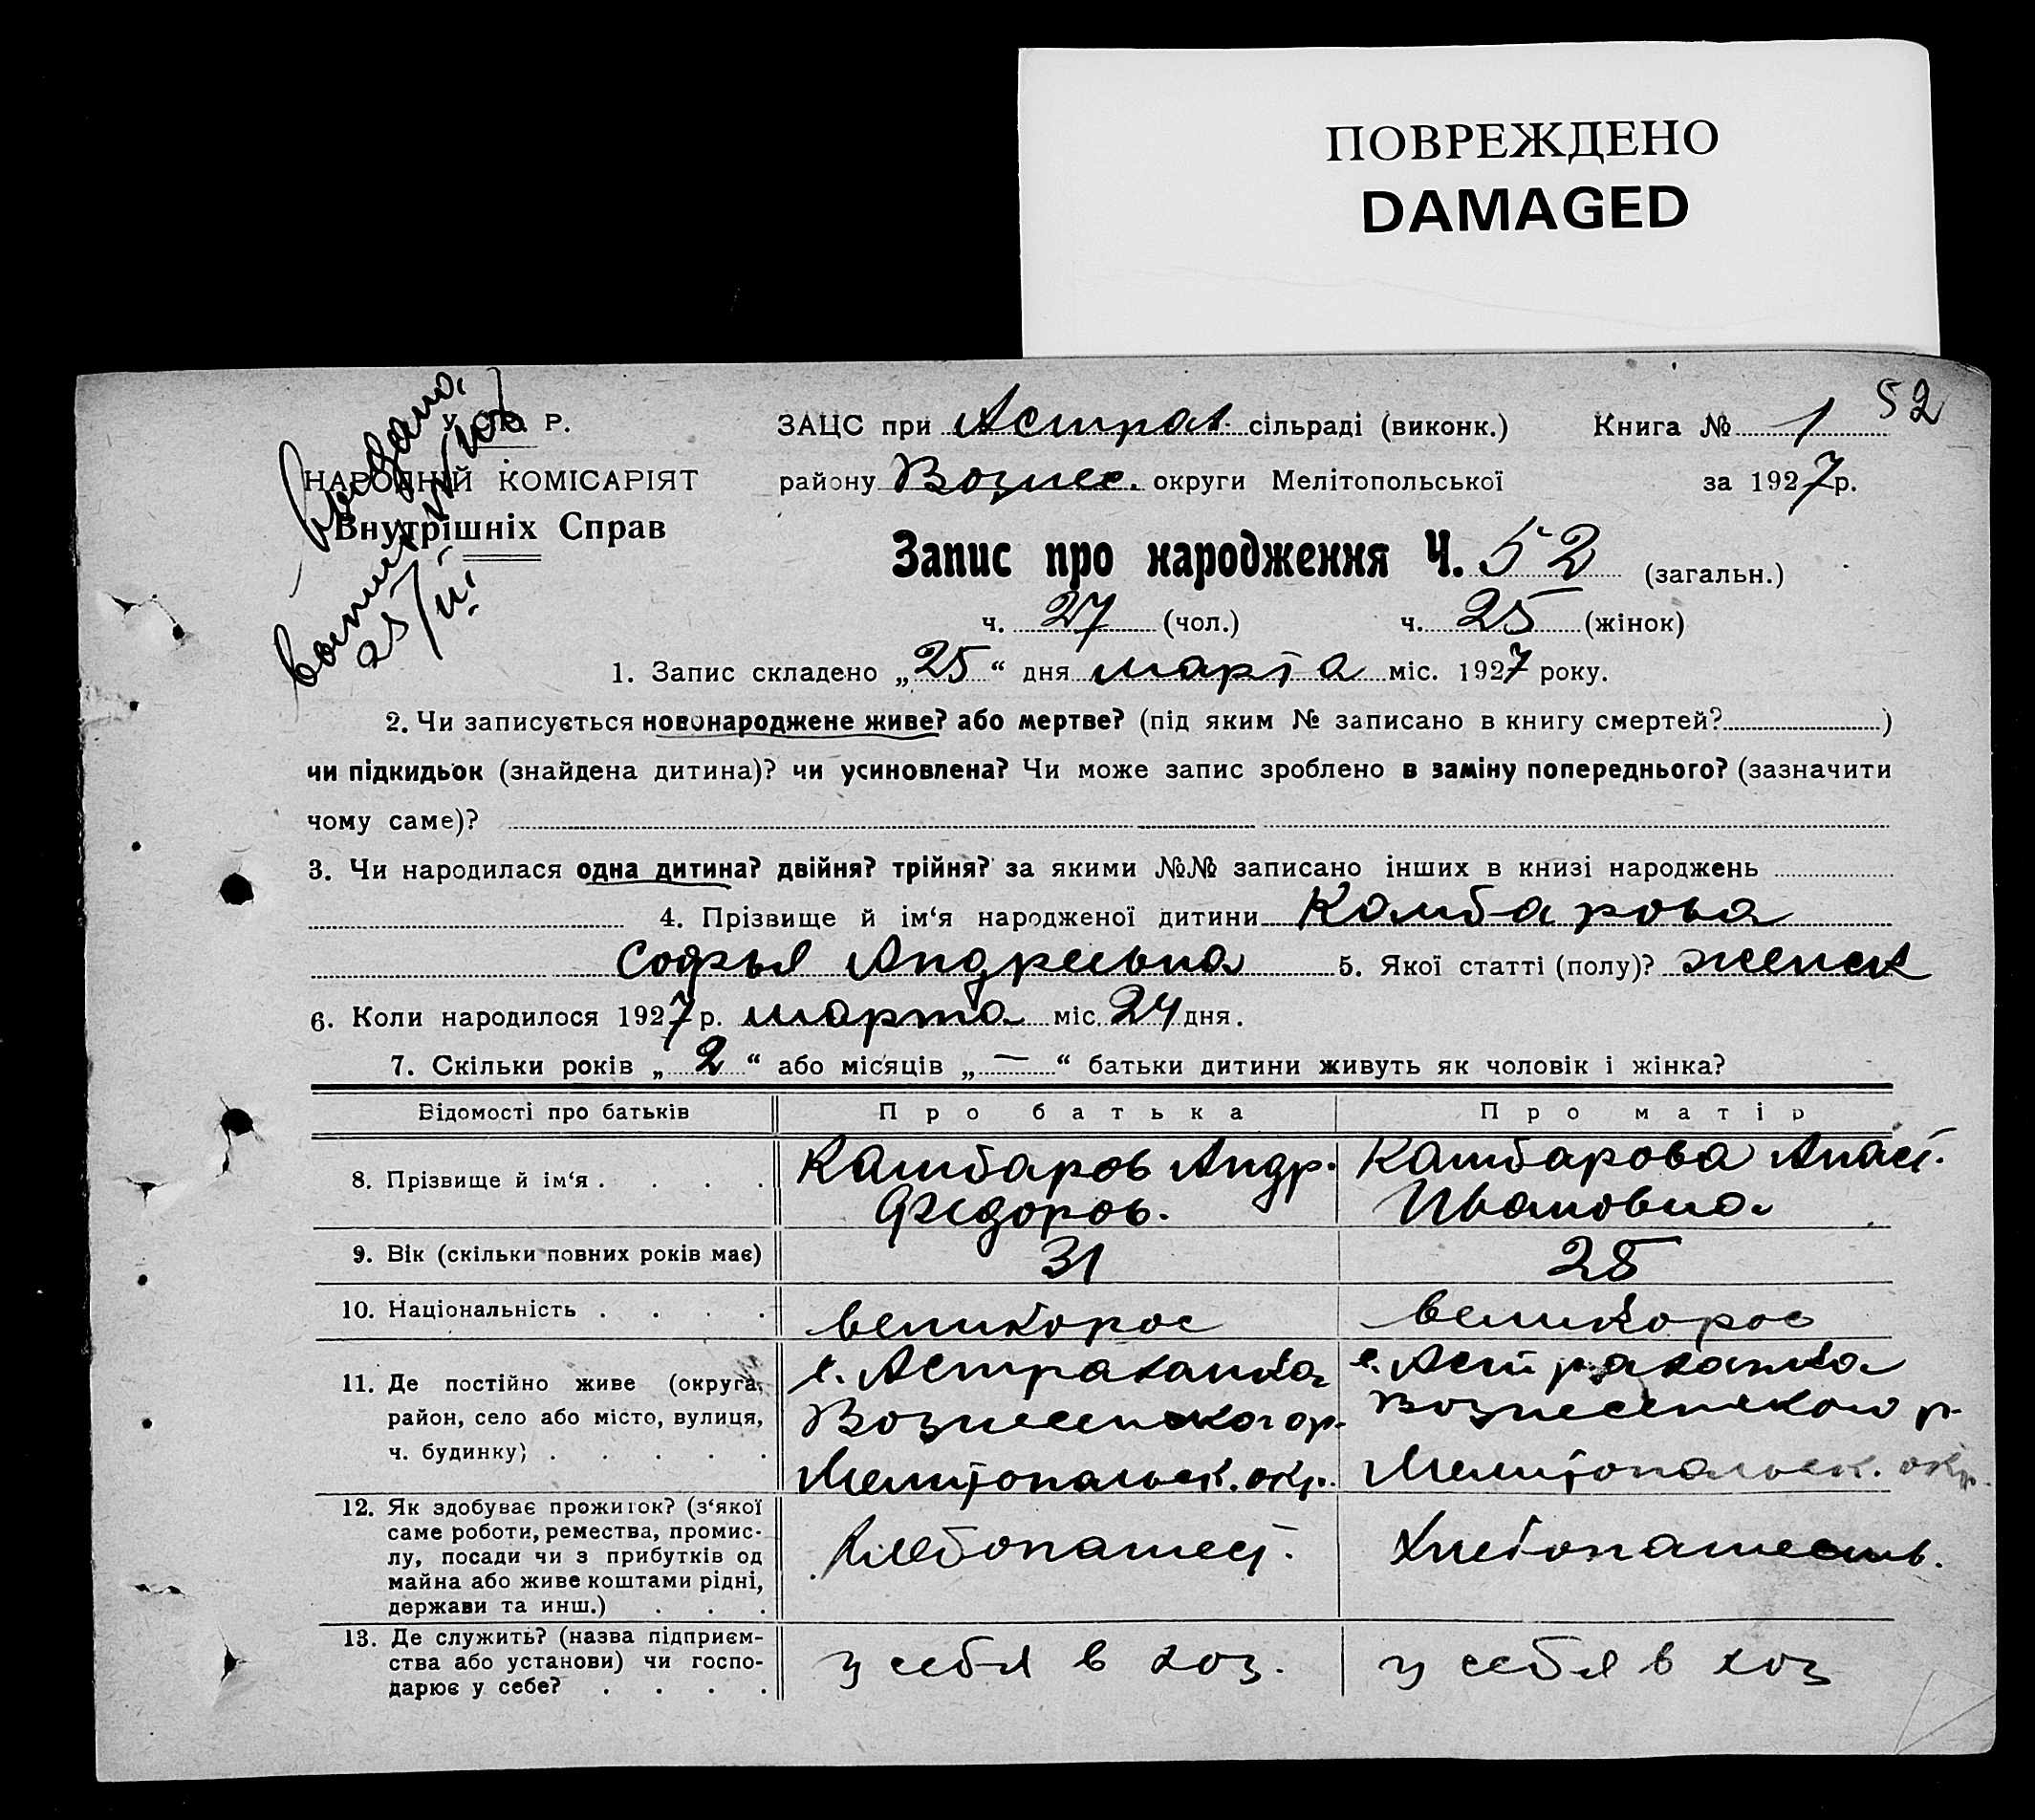 ПОВРЕЖДЕНО
DAMAGED
52
У. С. Р. Р.
НАРОДНІЙ КОМІСАРІЯТ
Внутрішніх Справ
Выдано
25/III
ЗАЦС при Астрах. сільраді (виконк.) Книга № 1
району Вознес. округи Мелітопольської за 1927 р.
Запис про народження Ч. 52 (загальн.)
ч. 27 (чол.) ч. 25 (жінок)
1. Запис складено „25“ дня марта міс. 1927 року.
2. Чи записується новонароджене живе? або мертве? (під яким № записано в книгу смертей?)
чи підкидьок (знайдена дитина)? чи усиновлена? Чи може запис зроблено в заміну попереднього? (зазначити
чому саме)?
3. Чи народилася одна дитина? двійня? трійня? за якими №№ записано інших в книзі народжень
4. Прізвище й ім‘я народженої дитини Камбарова
Софья Андреевна 5. Якої статті (полу)? женск
6. Коли народилося 1927 р. марта міс. 24 дня.
7. Скільки років „2“ або місяців „—“ батьки дитини живуть як чоловік і жінка?
Відомості про батьків Про батька Про матір
8. Прізвище й ім‘я . . . . Камбаров Андр. Камбарова Анаст.
Федоров. Ивановна
9. Вік (скільки повних років має) 31 28
10. Національність . . . . великорос великорос
11. Де постійно живе (округа, с. Астраханка с. Астраханка
район, село або місто, вулиця, Вознесенского р. Вознесенского р.
ч. будинку) . . . . . Мелитопольск. окр. Мелитопольск. окр.
12. Як здобуває прожиток? (з‘якої
саме роботи, ремества, промис-
лу, посади чи з прибутків од хлебопашест. Хлебопашеств.
майна або живе коштами рідні,
держави та инш.) . . .
13. Де служить? (назва підприєм-
ства або установи) чи госпо- у себя в хоз. у себя в хоз
дарює у себе? . . . .